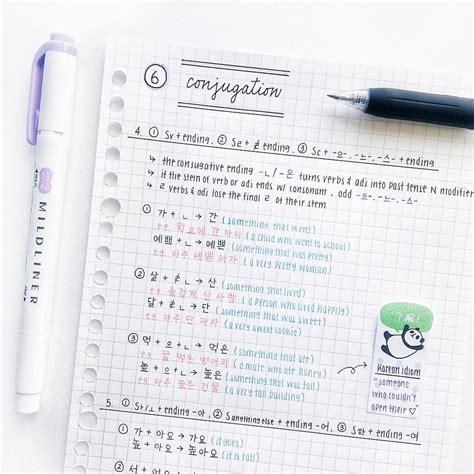 MILDLINER
⑥ conjugation
4. ① Sv + ending, ② Sㄹ + ending, ③ Sc + -으-, -느-, -스- + ending
↳ the conjugative ending -ㄴ/-은 turns verbs & adj into past tense N modifier
↳ if the stem of verb or adj ends w/ consonant, add -으-, -느-, -스-
↳ ㄹ verbs & adj lose the final ㄹ of their stem
① 가 + ㄴ → 간 (something that went)
e.g. 학교에 간 아이 (a child who went to school)
예쁘 + ㄴ → 예쁜 (something that was pretty)
e.g. 아주 예쁜 여자 (a very pretty woman)
② 살 + ㄴ → 산 (something that lived)
e.g. 즐겁게 산 사람 (a person who lived happily)
달 + ㄴ → 단 (something that was sweet)
e.g. 아주 단 과자 (a very sweet cookie)
③ 먹 + 으 + ㄴ → 먹은 (something that ate)
e.g. 꿀 먹은 벙어리 (a mute who ate honey)
높 + 으 + ㄴ → 높은 (something that was tall)
e.g. 아주 높은 건물 (a very tall building)
Korean idiom
"someone
who couldn't
open their ♡"
5. ① Sㅏ/ㅗ + ending -아, ② S anything else + ending -어, ③ S하 + ending -여
① 가 + 아요 → 가요 (it goes)
높 + 아요 → 높아요 (it is tall)